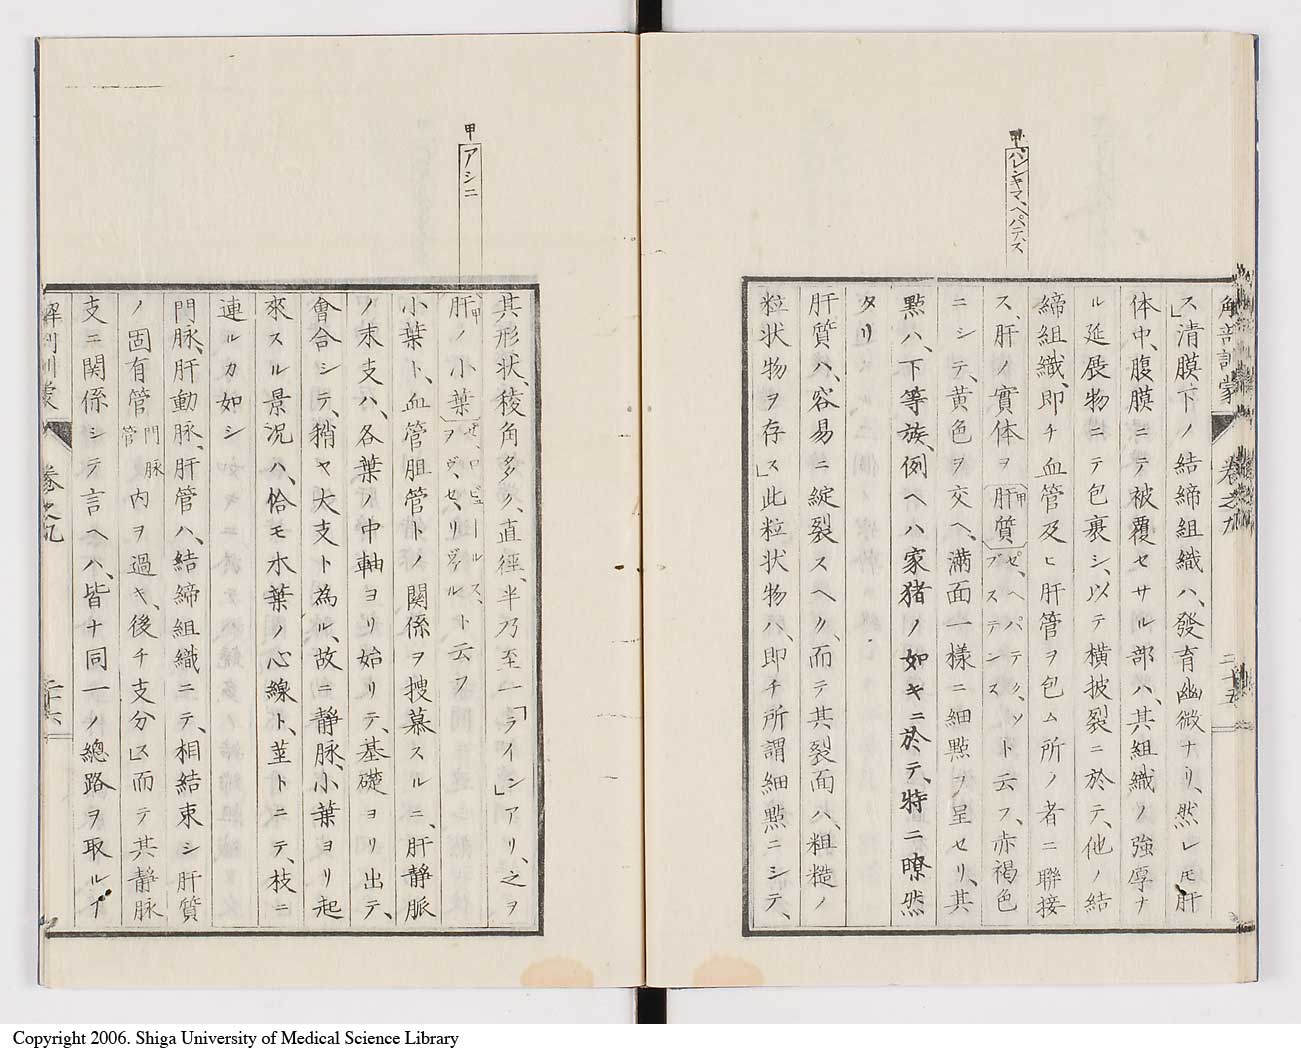 甲
パレンシャマ、ヘパテス
解剖訓蒙 卷之九 二十五
ス」清膜下ノ結締組織ハ、發育幽微ナリ、然レ𪜈肝
体中、腹膜ニテ被覆セサル部ハ、其組織ノ強厚ナ
ル延展物ニテ包裹シ、以テ横披裂ニ於テ、他ノ結
締組織、即チ血管及ヒ肝管ヲ包ム所ノ者ニ聯接
ス、肝ノ實体ヲ甲肝質ゼ、ヘパテク、ソブステンストト云フ、赤褐色
ニシテ、黄色ヲ交ヘ、滿面一樣ニ細點ヲ呈セリ、其
點ハ、下等族、例ヘハ家猪ノ如キニ於テ、特ニ暸然
タリ
肝質ハ、容易ニ綻裂スヘク、而テ其裂面ハ、粗糙ノ
粒状物ヲ存ス」此粒状物ハ、即チ所謂細點ニシテ、
甲
アシニ
其形状、稜角多ク、直徑、半乃至一「ライン」アリ、之ヲ
甲肝ノ小葉ゼ、ロビュールス、ヲヴ、ゼ、リヴァルト云フ
小葉ト、血管胆管トノ関係ヲ捜慕スルニ、肝静脈
ノ末支ハ、各葉ノ中軸ヨリ始リテ、基礎ヨリ出テ、
會合シテ、稍ヤ大支ト為ル、故ニ静脉、小葉ヨリ起
來スル景况ハ、恰モ木葉ノ心線ト、莖トニテ、枝ニ
連ルカ如シ
門脉、肝動脉、肝管ハ、結締組織ニテ、相結束シ肝質
ノ固有管門脉管内ヲ過キ、後チ支分ス」而テ其静脉
支ニ関係シテ言ヘハ、皆ナ同一ノ總路ヲ取ルヿ
解剖訓蒙 卷之九 二十六
Copyright 2006. Shiga University of Medical Science Library